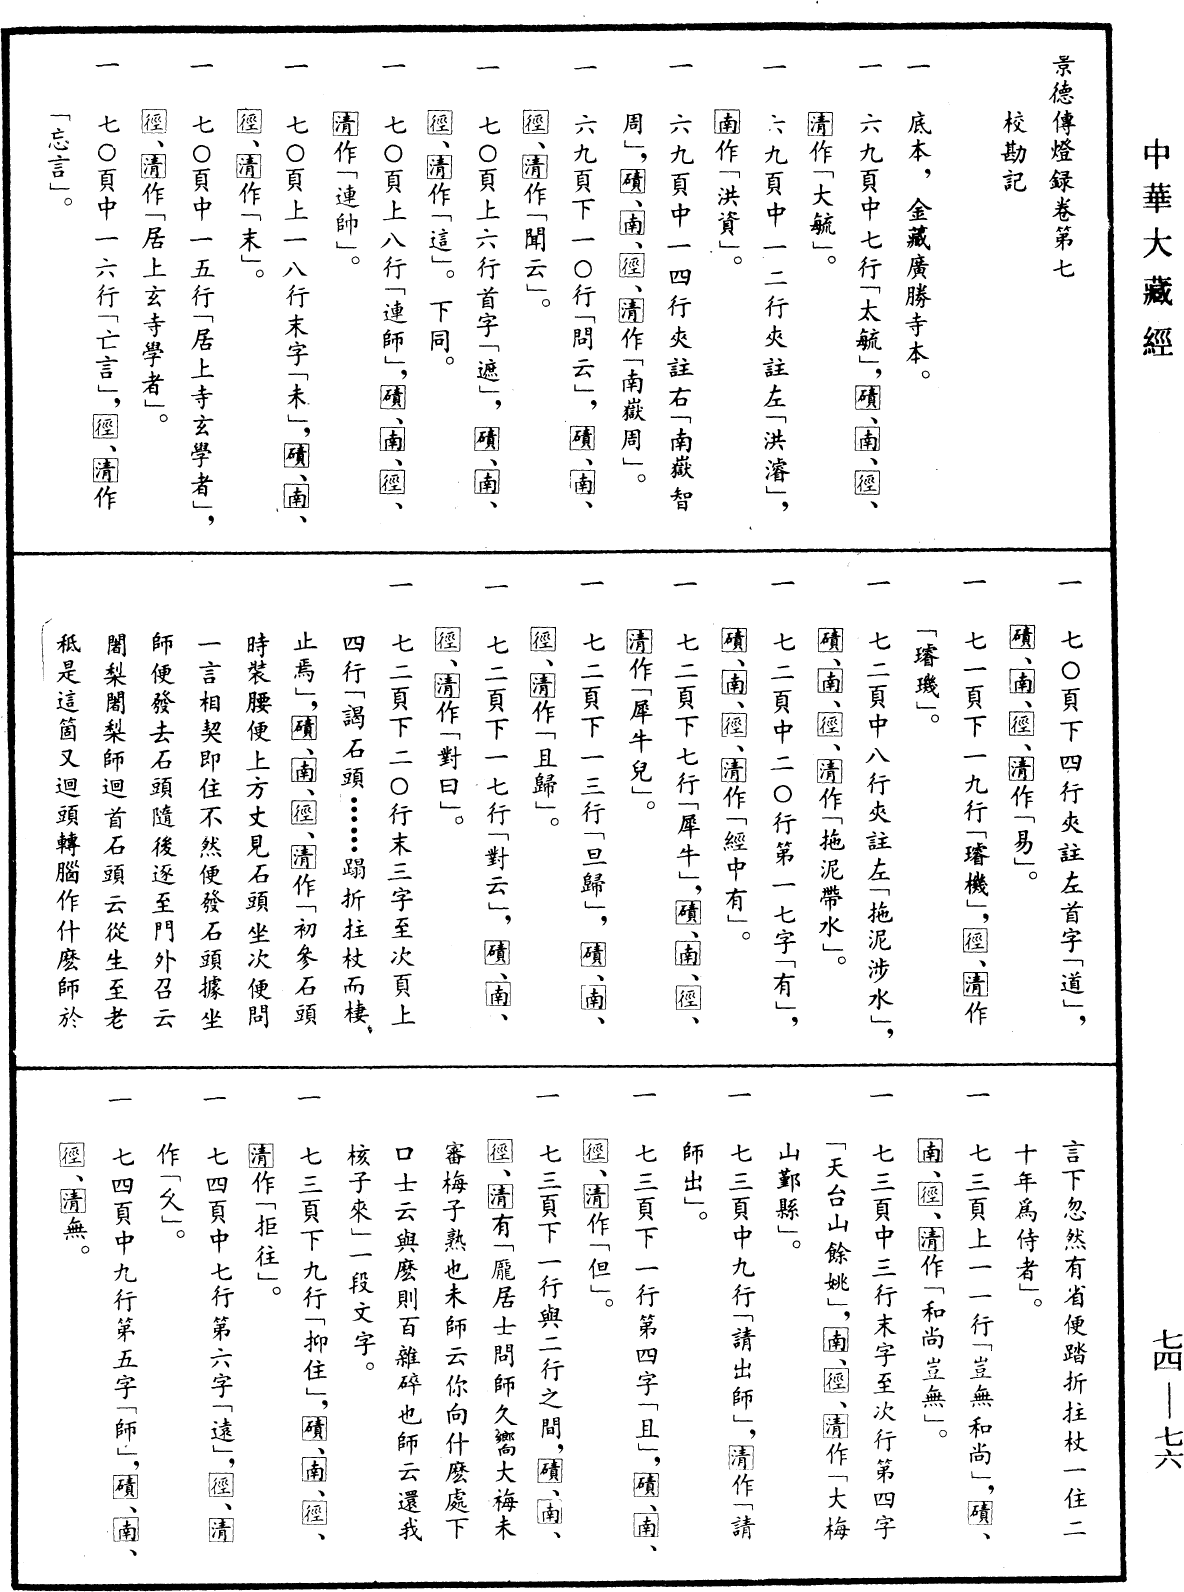 中華大藏經
七四—七六
景德傳燈録卷第七
校勘記
一 底本，金藏廣勝寺本。
一 六九頁中七行「太毓」，磧、南、徑、
清作「大毓」。
一 六九頁中一二行夾註左「洪濬」，
南作「洪資」。
一 六九頁中一四行夾註右「南嶽智
周」，磧、南、徑、清作「南嶽周」。
一 六九頁下一〇行「問云」，磧、南、
徑、清作「聞云」。
一 七〇頁上六行首字「遮」，磧、南、
徑、清作「這」。下同。
一 七〇頁上八行「連師」，磧、南、徑、
清作「連帥」。
一 七〇頁上一八行末字「未」，磧、南、
徑、清作「末」。
一 七〇頁中一五行「居上寺玄學者」，
徑、清作「居上玄寺學者」。
一 七〇頁中一六行「亡言」，徑、清作
「忘言」。
一 七〇頁下四行夾註左首字「道」，
磧、南、徑、清作「易」。
一 七一頁下一九行「璿機」，徑、清作
「璿璣」。
一 七二頁中八行夾註左「拖泥涉水」，
磧、南、徑、清作「拖泥帶水」。
一 七二頁中二〇行第一七字「有」，
磧、南、徑、清作「經中有」。
一 七二頁下七行「犀牛」，磧、南、徑、
清作「犀牛兒」。
一 七二頁下一三行「旦歸」，磧、南、
徑、清作「且歸」。
一 七二頁下一七行「對云」，磧、南、
徑、清作「對曰」。
一 七二頁下二〇行末三字至次頁上
四行「謁石頭……蹋折拄杖而棲
止焉」，磧、南、徑、清作「初參石頭
時装腰便上方丈見石頭坐次便問
一言相契即住不然便發石頭據坐
師便發去石頭隨後逐至門外召云
闍梨闍梨師迴首石頭云從生至老
秪是這箇又迴頭轉腦作什麽師於
言下忽然有省便踏折拄杖一住二
十年爲侍者」。
一 七三頁上一一行「豈無和尚」，磧、
南、徑、清作「和尚豈無」。
一 七三頁中三行末字至次行第四字
「天台山餘姚」，南、徑、清作「大梅
山鄞縣」。
一 七三頁中九行「請出師」，清作「請
師出」。
一 七三頁下一行第四字「且」，磧、南、
徑、清作「但」。
一 七三頁下一行與二行之間，磧、南、
徑、清有「龐居士問師久嚮大梅未
審梅子熟也未師云你向什麽處下
口士云與麽則百雜碎也師云還我
核子來」一段文字。
一 七三頁下九行「抑住」，磧、南、徑、
清作「拒往」。
一 七四頁中七行第六字「遠」，徑、清
作「久」。
一 七四頁中九行第五字「師」，磧、南、
徑、清無。